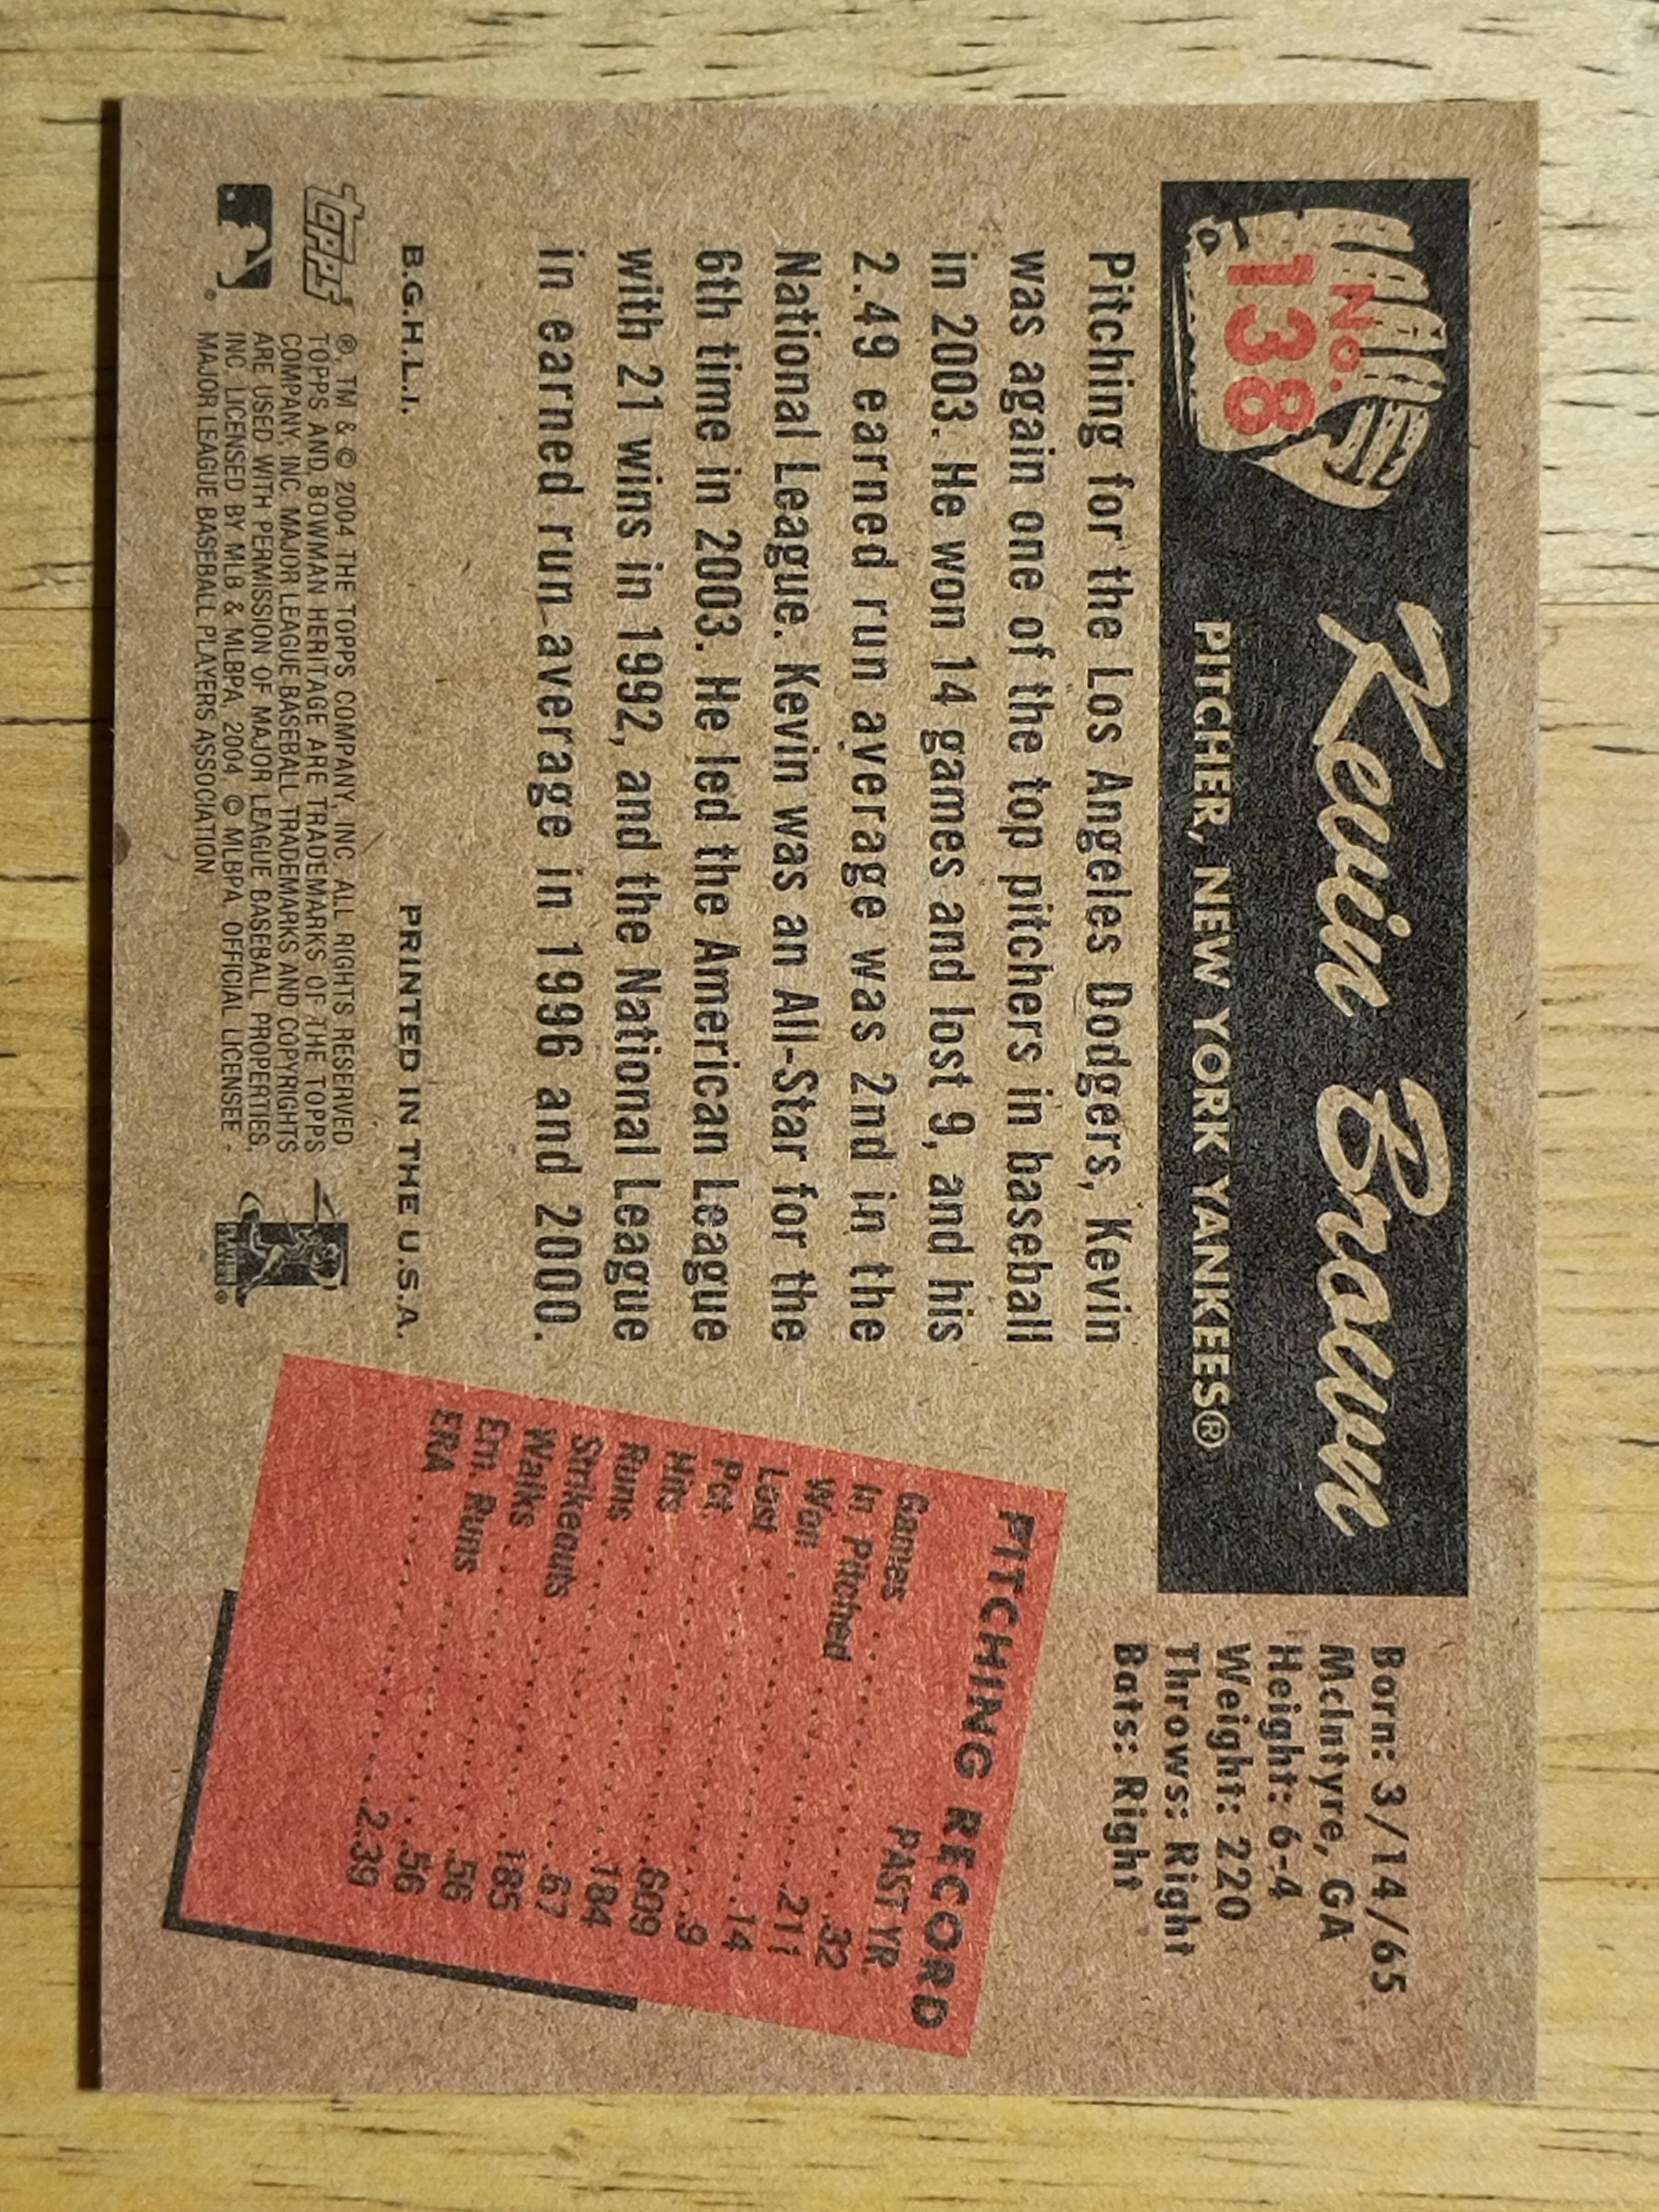 No.
138
Kevin Brown
PITCHER, NEW YORK YANKEES®
Born: 3/14/65
McIntyre, GA
Height: 6-4
Weight: 220
Throws: Right
Bats: Right
Pitching for the Los Angeles Dodgers, Kevin
was again one of the top pitchers in baseball
in 2003. He won 14 games and lost 9, and his
2.49 earned run average was 2nd in the
National League. Kevin was an All-Star for the
6th time in 2003. He led the American League
with 21 wins in 1992, and the National League
in earned run average in 1996 and 2000.
PITCHING RECORD
PAST YR.
Games ..... 32
In. Pitched ..... 211
Won ..... 14
Lost ..... 9
Pct. ..... .609
Hits ..... 184
Runs ..... 67
Strikeouts ..... 185
Walks ..... 56
Ern. Runs ..... 56
ERA ..... 2.39
B.G.H.L.I. PRINTED IN THE U.S.A.
topps
®, TM & © 2004 THE TOPPS COMPANY, INC. ALL RIGHTS RESERVED.
TOPPS AND BOWMAN HERITAGE ARE TRADEMARKS OF THE TOPPS
COMPANY, INC. MAJOR LEAGUE BASEBALL TRADEMARKS AND COPYRIGHTS
ARE USED WITH PERMISSION OF MAJOR LEAGUE BASEBALL PROPERTIES,
INC. LICENSED BY MLB & MLBPA, 2004. © MLBPA. OFFICIAL LICENSEE -
MAJOR LEAGUE BASEBALL PLAYERS ASSOCIATION